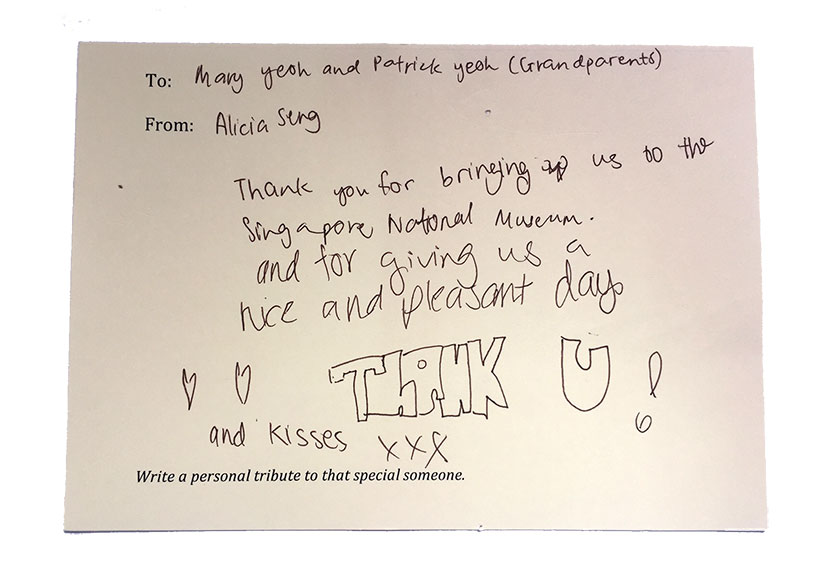 To: Mary yeoh and Patrick yeoh (Grandparents)
From: Alicia Seng
Thank you for bringing us to the
Singapore National Museum.
and for giving us a
nice and pleasant day
THANK U!
and kisses xxx
Write a personal tribute to that special someone.